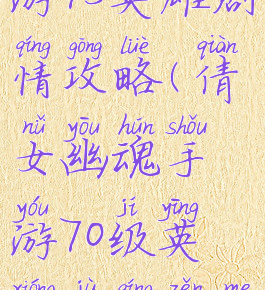 游75英雄剧
qíng gōng lüè qiàn
情攻略(倩
nǚ yōu hún shǒu
女幽魂手
yóu jí yīng
游70级英
xióng jù qíng zěn me